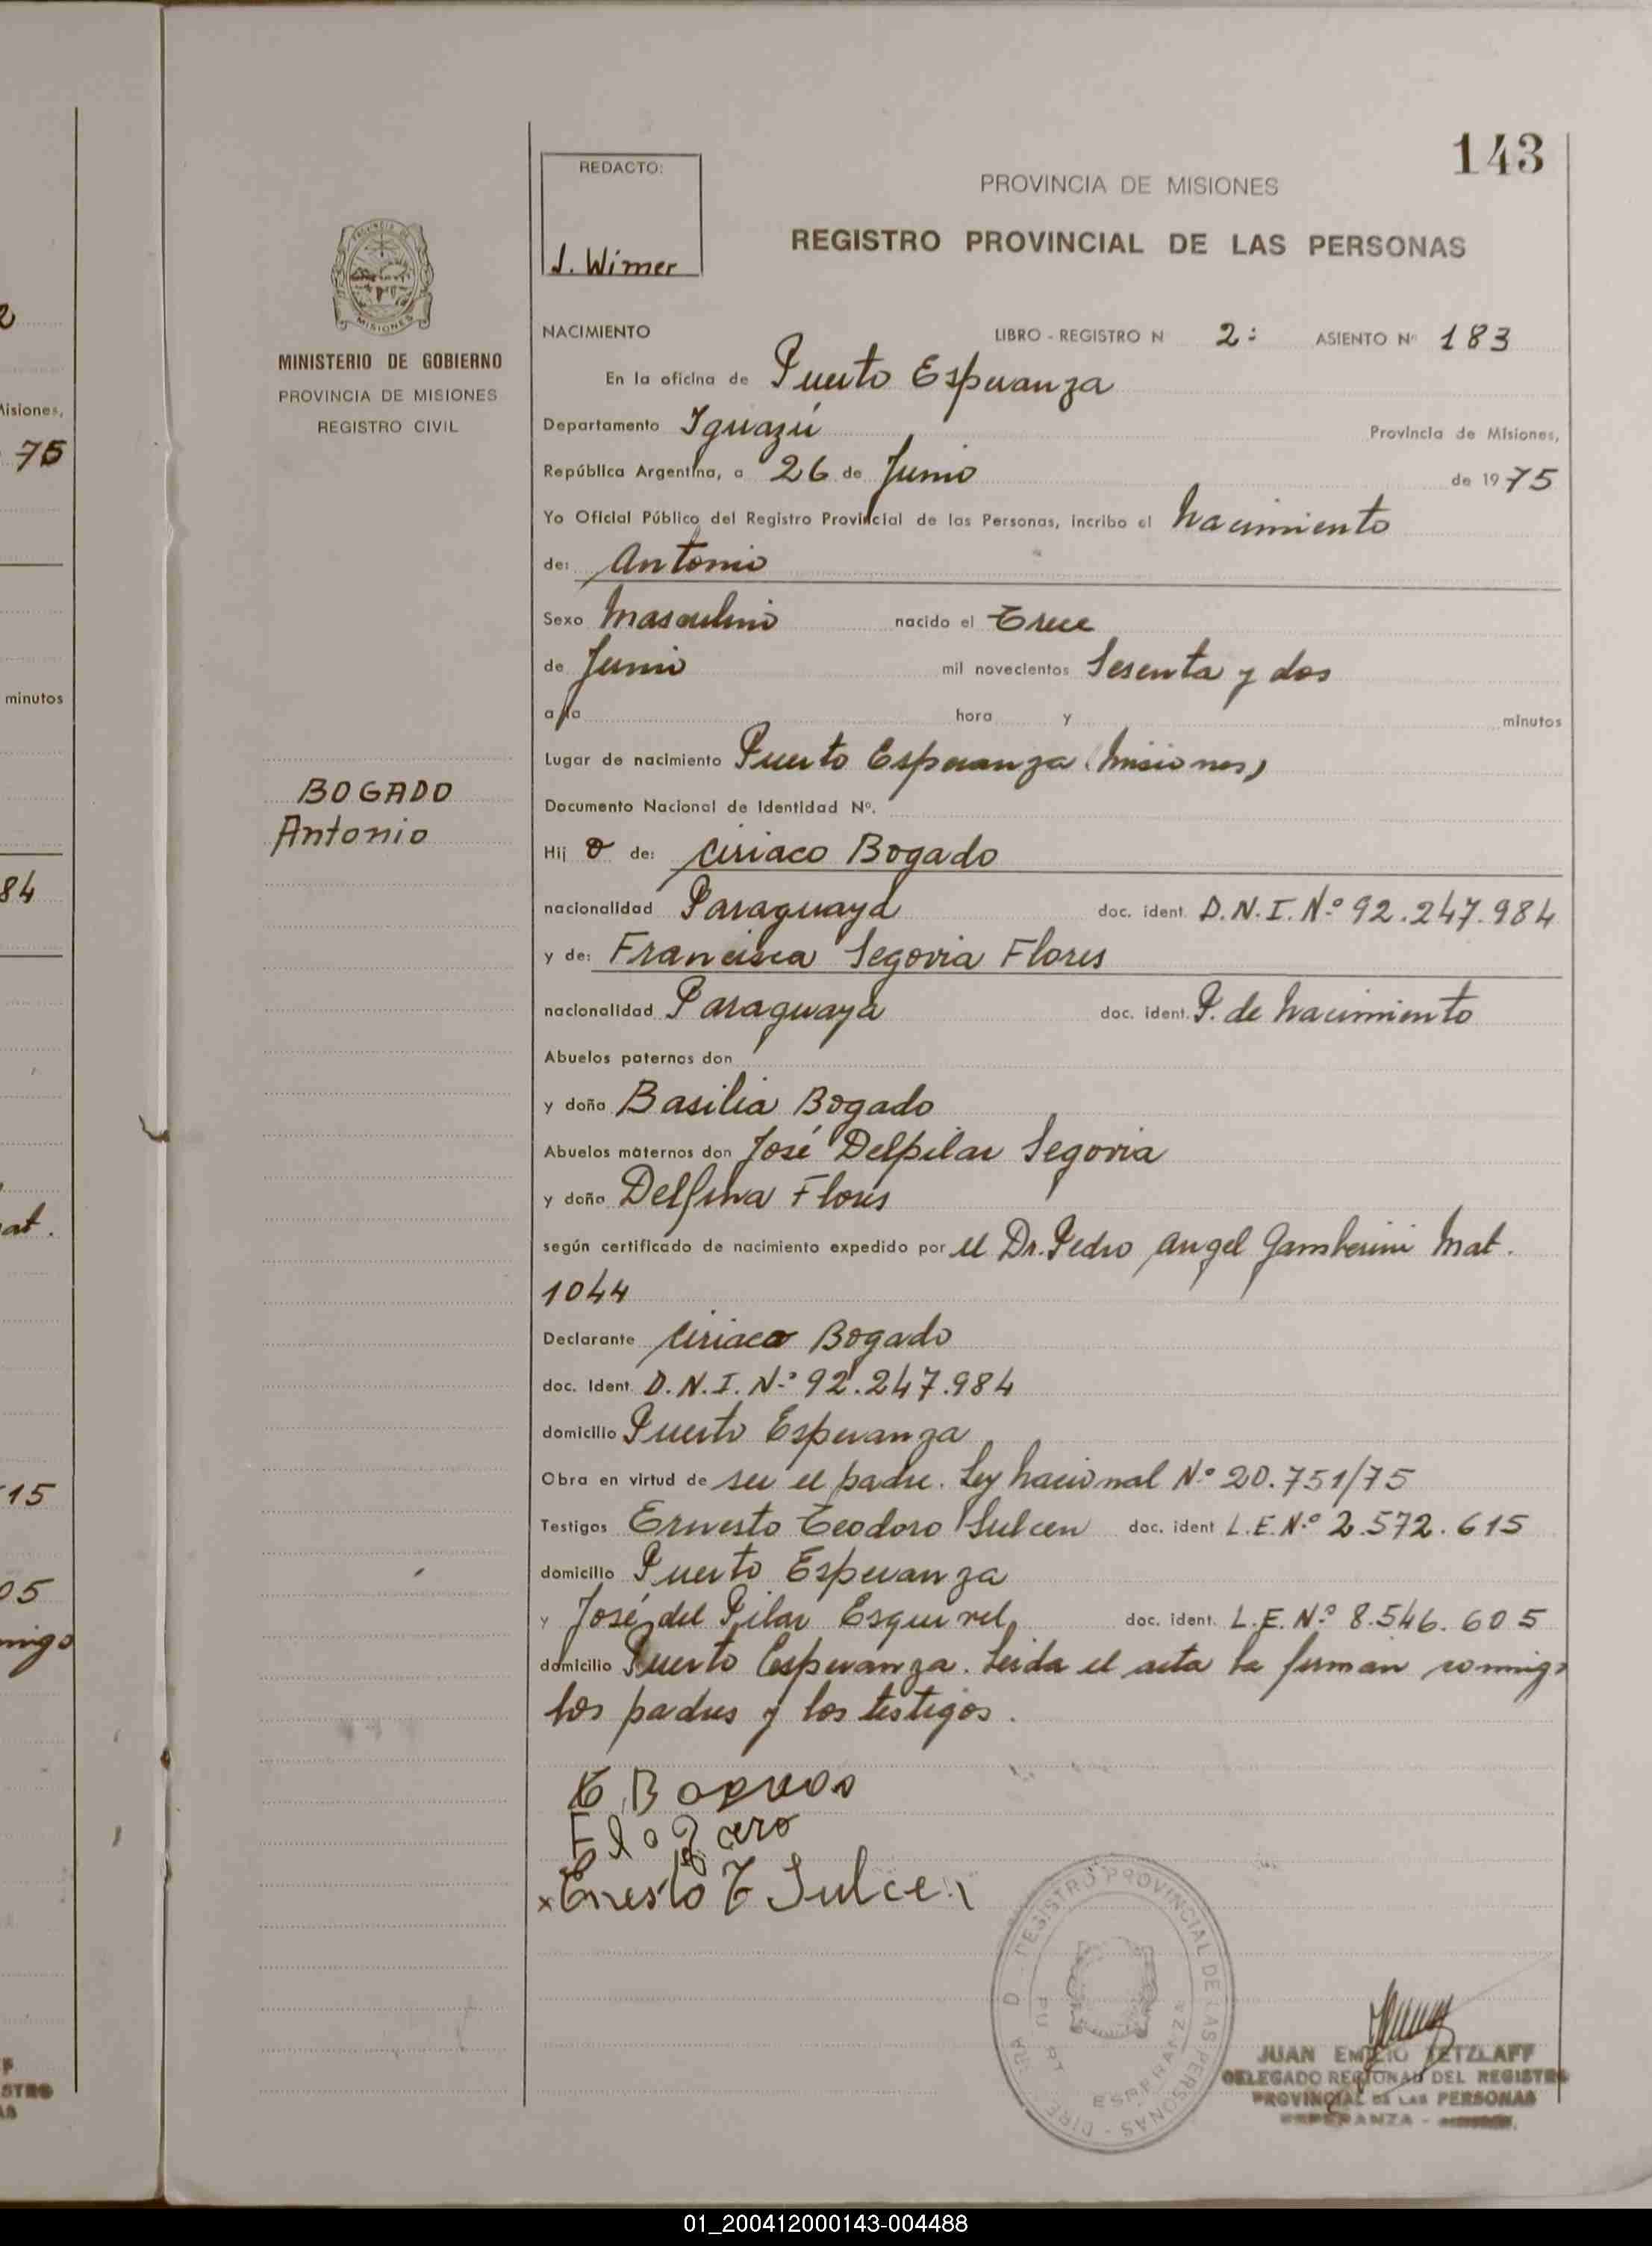 2
Misiones,
75
minutos
84
at.
15
05
migo
143
REDACTO:
J. Wimer
PROVINCIA DE MISIONES
REGISTRO PROVINCIAL DE LAS PERSONAS
MISIONES
MINISTERIO DE GOBIERNO
PROVINCIA DE MISIONES
REGISTRO CIVIL
BOGADO
Antonio
NACIMIENTO LIBRO - REGISTRO N 2: ASIENTO Nº 183
En la oficina de Puerto Esperanza
Departamento Iguazú Provincia de Misiones,
República Argentina, a 26 de Junio de 1975
Yo Oficial Público del Registro Provincial de las Personas, incribo el Nacimiento
de: Antonio
Sexo Masculino nacido el Trece
de Junio mil novecientos Sesenta y dos
a la hora y minutos
Lugar de nacimiento Puerto Esperanza (Misiones)
Documento Nacional de Identidad Nº.
Hij o de: Ciriaco Bogado
nacionalidad Paraguaya doc. ident. D.N.I. Nº 92.247.984
y de: Francisca Segovia Flores
nacionalidad Paraguaya doc. ident. P. de Nacimiento
Abuelos paternos don
y doña Basilia Bogado
Abuelos maternos don José Delpilar Segovia
y doña Delfina Flores
según certificado de nacimiento expedido por el Dr. Pedro Angel Gamberini Mat.
1044
Declarante Ciriaco Bogado
doc. Ident. D.N.I. Nº 92.247.984
domicilio Puerto Esperanza
Obra en virtud de ser el padre. Ley Nacional Nº 20.751/75
Testigos Ernesto Teodoro Sulcen doc. ident L.E. Nº 2.572.615
domicilio Puerto Esperanza
y José del Pilar Esquivel doc. ident. L.E. Nº 8.546.605
domicilio Puerto Esperanza. Leida el acta la firman conmigo
los padres y los testigos.
x Ernesto T Sulcen
REGISTRO PROVINCIAL DE LAS PERSONAS
ESPERANZA
JUAN EMILIO TETZLAFF
DELEGADO REGIONAL DEL REGISTRO
PROVINCIAL DE LAS PERSONAS
ESPERANZA -
01_200412000143-004488